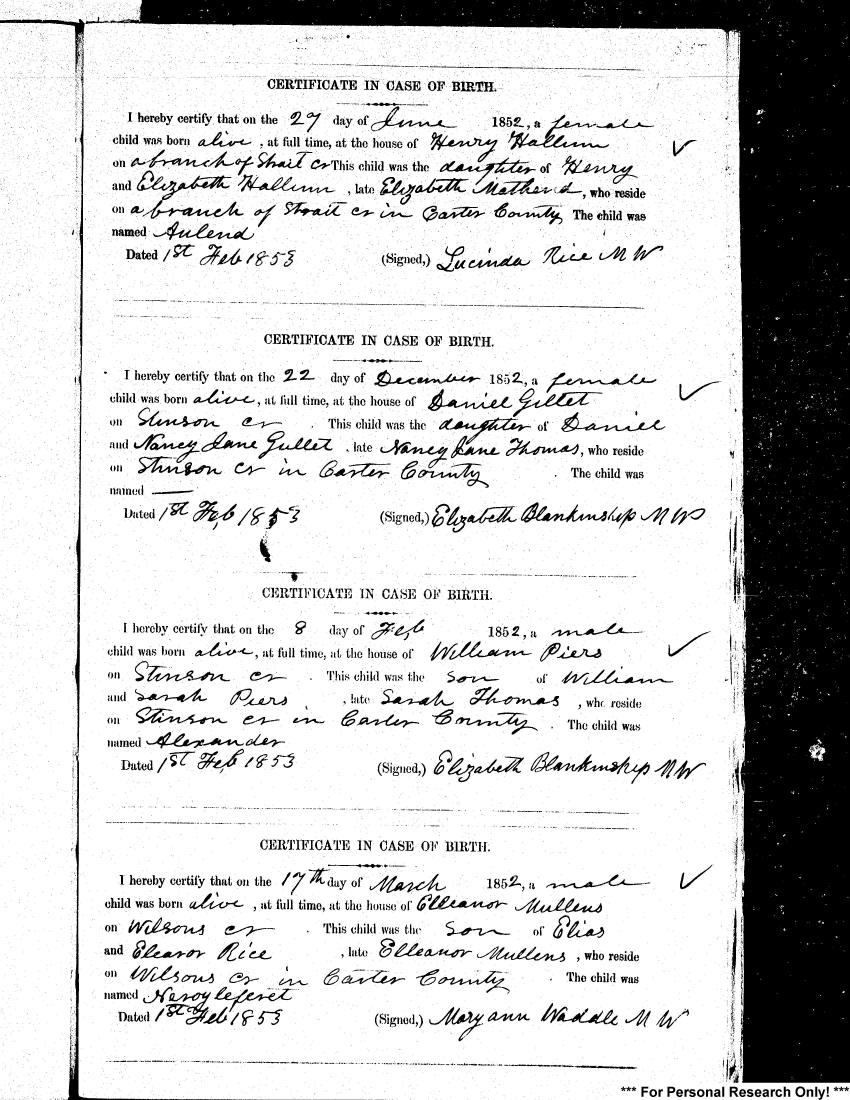 55
CERTIFICATE IN CASE OF BIRTH.
I hereby certify that on the 27 day of June 1852, a female
child was born alive, at full time, at the house of Henry Hallinn
on a branch of Strait cr This child was the daughter of Henry
and Elizabeth Hallinn, late Elizabeth, who reside
on a branch of Strait cr in Carter County The child was
named Aulend
Dated 1st Feb 1853 (Signed,) Lucinda Rice M W
CERTIFICATE IN CASE OF BIRTH.
I hereby certify that on the 22 day of December 1852, a female
child was born alive, at full time, at the house of Daniel Gillet
on Stinson cr. This child was the daughter of Daniel
and Nancy Jane Gullet, late Nancy Jane Thomas, who reside
on Stinson cr in Carter County. The child was
named —
Dated 1st Feb 1853 (Signed,) Elizabeth Blankinship M W
CERTIFICATE IN CASE OF BIRTH.
I hereby certify that on the 8 day of Feb 1852, a male
child was born alive, at full time, at the house of William Piers
on Stinson cr. This child was the son of William
and Sarah Piers, late Sarah Thomas, who reside
on Stinson cr in Carter County. The child was
named Alexander
Dated 1st Feb 1853 (Signed,) Elizabeth Blankinship M W
CERTIFICATE IN CASE OF BIRTH.
I hereby certify that on the 17th day of March 1852, a male
child was born alive, at full time, at the house of Elleanor Mullens
on Wilsons cr. This child was the son of Elias
and Eleavor Rice, late Elleanor Mullens, who reside
on Wilsons cr in Carter County. The child was
named
Dated 1st Feb 1853 (Signed,) Mary ann Waddle M W
*** For Personal Research Only! ***